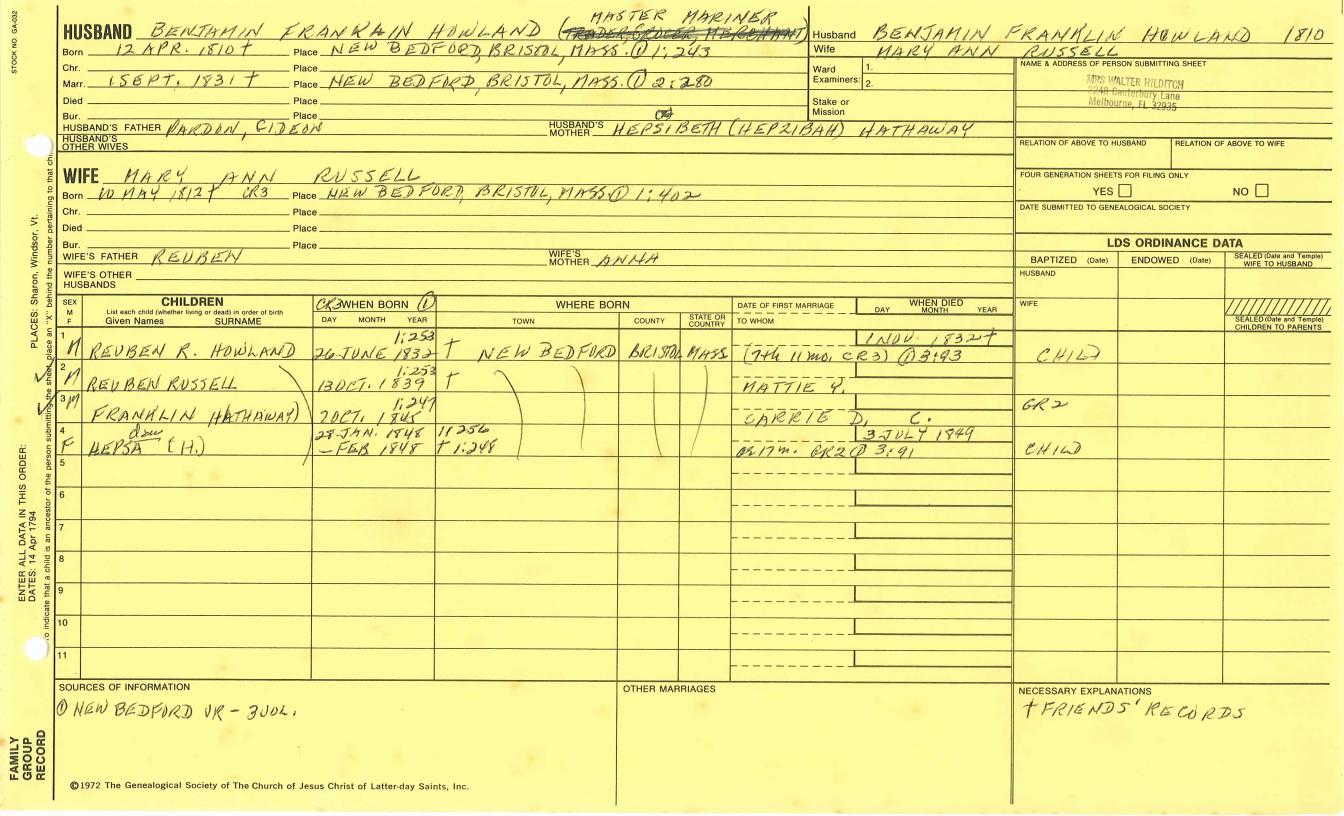 STOCK NO. GA-032
HUSBAND BENJAMIN FRANKLIN HOWLAND (MASTER MARINER
TRADER, GROCER, MERCHANT)
Born 12 APR. 1810 † Place NEW BEDFORD, BRISTOL, MASS. ① 1:243
Chr. Place
Marr. 1 SEPT. 1831 † Place NEW BEDFORD, BRISTOL, MASS. ① 2:280
Died Place
Bur. Place
HUSBAND'S FATHER PARDON, GIDEON HUSBAND'S MOTHER HEPSIBETH (HEPZIBAH) HATHAWAY
HUSBAND'S OTHER WIVES
Husband BENJAMIN FRANKLIN HOWLAND 1810
Wife MARY ANN RUSSELL
Ward Examiners: 1.
2.
Stake or Mission
NAME & ADDRESS OF PERSON SUBMITTING SHEET
MRS WALTER HILDITCH
2248 Canterbury Lane
Melbourne, FL 32935
RELATION OF ABOVE TO HUSBAND RELATION OF ABOVE TO WIFE
FOUR GENERATION SHEETS FOR FILING ONLY
YES NO
DATE SUBMITTED TO GENEALOGICAL SOCIETY
WIFE MARY ANN RUSSELL
Born 10 MAY 1812 † CR3 Place NEW BEDFORD, BRISTOL, MASS. ① 1:402
Chr. Place
Died Place
Bur. Place
WIFE'S FATHER REUBEN WIFE'S MOTHER ANNA
WIFE'S OTHER HUSBANDS
LDS ORDINANCE DATA
BAPTIZED (Date) ENDOWED (Date) SEALED (Date and Temple) WIFE TO HUSBAND
HUSBAND
WIFE
SEALED (Date and Temple) CHILDREN TO PARENTS
SEX M F
CHILDREN
List each child (whether living or dead) in order of birth
Given Names SURNAME
CR3 WHEN BORN ①
DAY MONTH YEAR
WHERE BORN
TOWN COUNTY STATE OR COUNTRY
DATE OF FIRST MARRIAGE
TO WHOM
WHEN DIED
DAY MONTH YEAR
1 1:253 1 NOV. 1832 †
M REUBEN R. HOWLAND 26 JUNE 1832 † NEW BEDFORD BRISTOL MASS (7th 11 mo, CR3) ① 3:93 CHILD
2 1:253
M REUBEN RUSSELL 13 OCT. 1839 † MATTIE Y.
3 M 1:247
FRANKLIN HATHAWAY) 7 OCT. 1845 CARRIE D, C. GR2
4 dau 28 JAN. 1848 1:256 3 JULY 1849
F HEPSA (H.) – FEB 1848 † 1:248 ae 17 m. GR2 ① 3:91 CHILD
5
6
7
8
9
10
11
SOURCES OF INFORMATION
① NEW BEDFORD VR – 3 VOL.
OTHER MARRIAGES
NECESSARY EXPLANATIONS
† FRIENDS' RECORDS
©1972 The Genealogical Society of The Church of Jesus Christ of Latter-day Saints, Inc.
FAMILY GROUP RECORD
ENTER ALL DATA IN THIS ORDER:
DATES: 14 Apr 1794
PLACES: Sharon, Windsor, Vt.
To indicate that a child is an ancestor of the person submitting the sheet, place an "X" behind the number pertaining to that ch